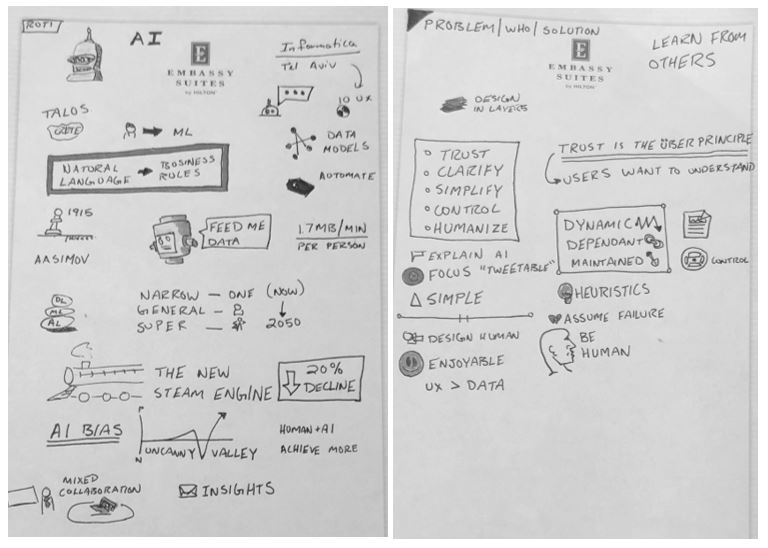 ROTI
AI
E
EMBASSY
SUITES
by HILTON
Informatica
Tel Aviv
10 UX
TALOS
ML
DATA
MODELS
NATURAL
LANGUAGE
BUSINESS
RULES
AUTOMATE
1915
AASIMOV
FEED ME
DATA
1.7MB/MIN
PER PERSON
DL
ML
AI
NARROW — ONE (NOW)
GENERAL —
SUPER — 2050
THE NEW
STEAM ENGINE
20%
DECLINE
AI BIAS
P
N
UNCANNY VALLEY
HUMAN + AI
ACHIEVE MORE
MIXED
COLLABORATION
INSIGHTS
PROBLEM/WHO/SOLUTION
E
EMBASSY
SUITES
by HILTON
LEARN FROM
OTHERS
DESIGN
IN LAYERS
TRUST
CLARIFY
SIMPLIFY
CONTROL
HUMANIZE
TRUST IS THE ÜBER PRINCIPLE
USERS WANT TO UNDERSTAND
DYNAMIC
DEPENDANT
MAINTAINED
CONTROL
EXPLAIN AI
FOCUS "TWEETABLE"
SIMPLE
HEURISTICS
ASSUME FAILURE
DESIGN HUMAN
ENJOYABLE
UX > DATA
BE
HUMAN